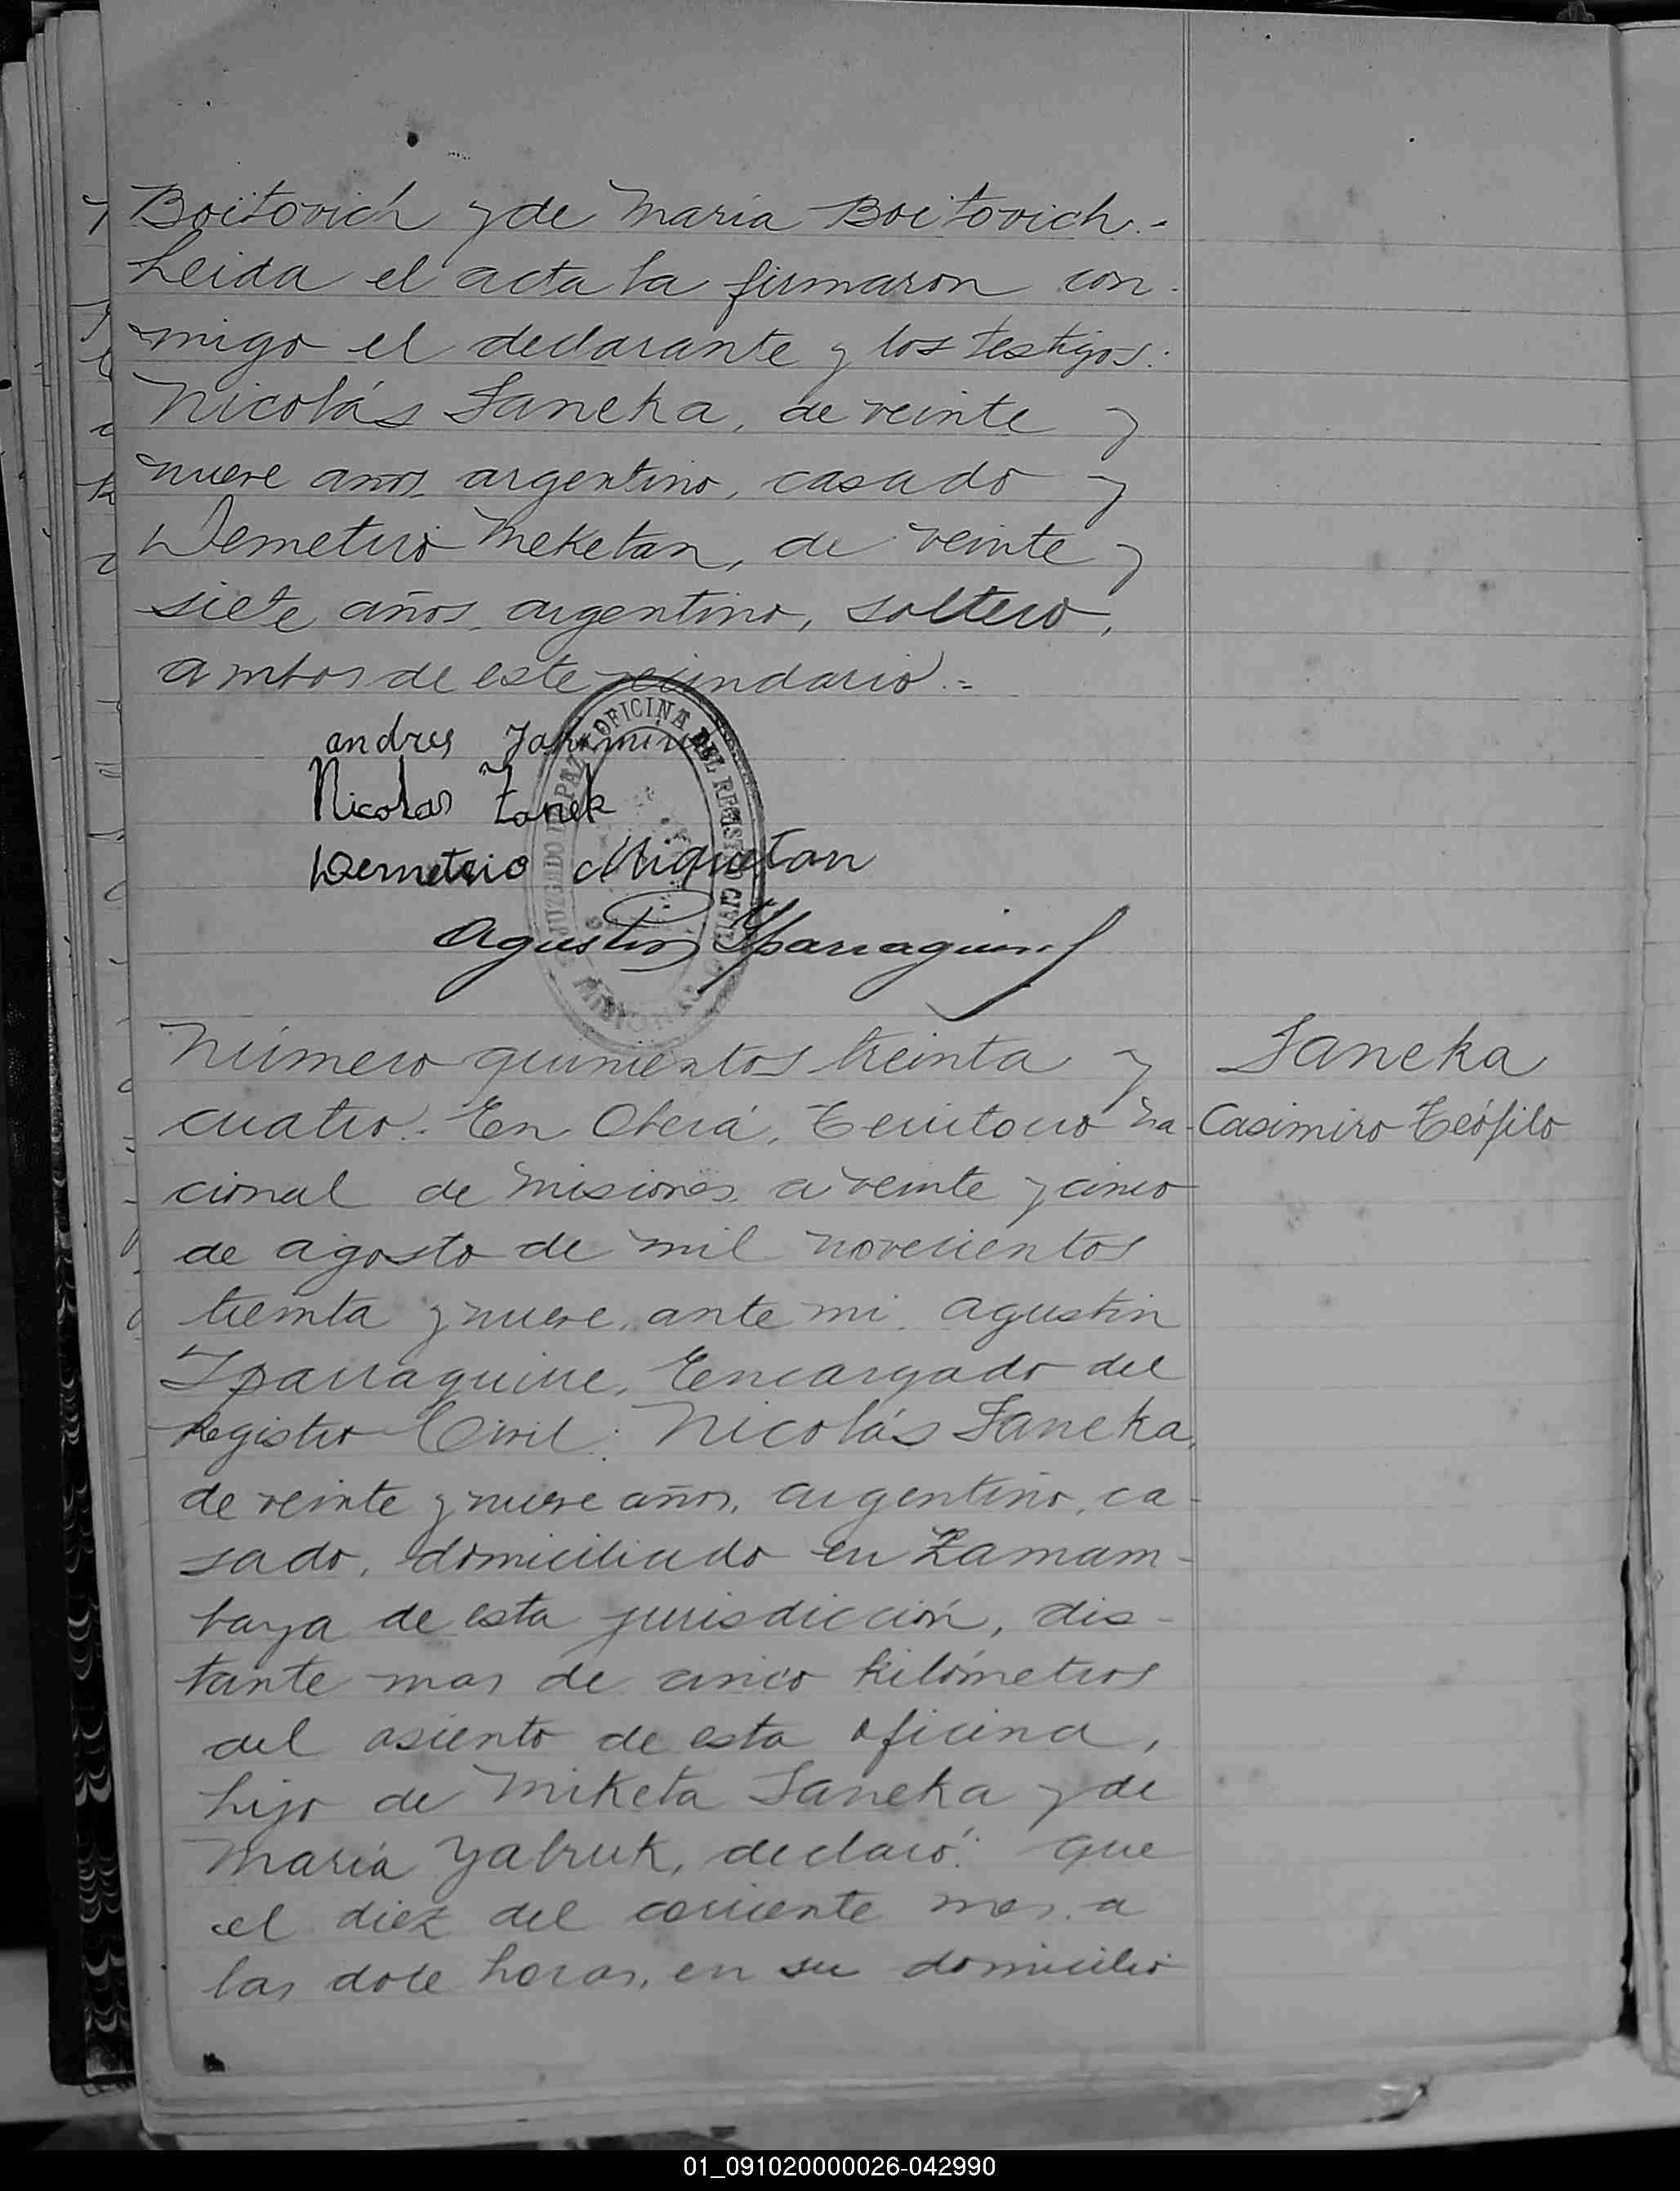 Boitovich y de María Boitovich.-
Leida el acta la firmaron con-
migo el declarante y los testigos:
Nicolás Janeka, de veinte y
nueve años, argentino, casado y
Demetrio Meketan, de veinte y
siete años, argentino, soltero,
ambos de este vecindario.=
andres
Nicolas Zanek
Demetrio Miquetan
Agustin Yparraguirre
JUZGADO DE PAZ OFICINA DEL REGISTRO CIVIL
MISIONES
Número quinientos treinta y
cuatro. En Oberá, Territorio Na-
cional de Misiones, a veinte y cinco
de agosto de mil novecientos
treinta y nueve, ante mi, Agustin
Yparraguirre, Encargado del
Registro Civil: Nicolás Janeka,
de veinte y nueve años, argentino, ca-
sado, domiciliado en Zamam-
baya de esta jurisdicción, dis-
tante mas de cinco kilómetros
del asiento de esta oficina,
hijo de Miketa Janeka y de
María Yabruk, declaró: Que
el diez del corriente mes, a
las doce horas, en su domicilio
Janeka
Casimiro Teófilo
01_091020000026-042990